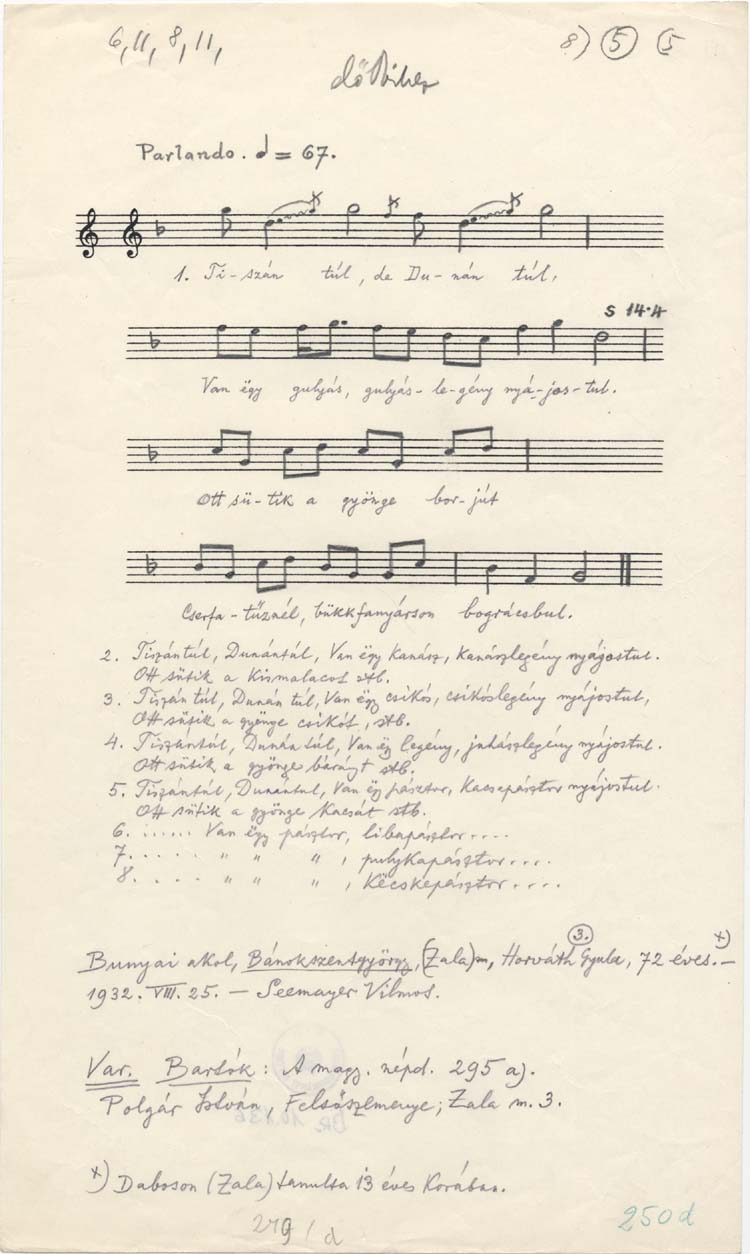 6, 11, 8, 11,
8) 5 5
Parlando. = 67.
1. Ti-szán túl, de Du-nán túl,
S 14.4
Van ëgy gulyás, gulyás-le-gény nyá-jos-tul.
Ott sü-tik a gyönge bor-jút
Cserfa-tűznél, bükkfanyárson bográcsbul.
2. Tiszántúl, Dunántúl, Van ëgy kanász, kanászlegény nyájostul.
Ott sütik a kismalacot stb.
3. Tiszán túl, Dunán túl, Van ëgy csikós, csikóslegény nyájostul,
Ott sütik a gyönge csikót, stb.
4. Tiszántúl, Dunán túl, Van ëgy legény, juhászlegény nyájostul.
Ott sütik a gyönge bárányt stb.
5. Tiszántúl, Dunántul, Van ëgy pásztor, Kacsapásztor nyájostul.
Ott sütik a gyönge Kacsát stb.
6. ...... Van ëgy pásztor, libapásztor....
7. ..... " " " , pulykapásztor....
8. .... " " " , Këcskepásztor....
3.
Bunyai akol, Bánokszentgyörgy, (Zala)m, Horváth Gyula, 72 éves. x) –
1932. VIII. 25. – Seemayer Vilmos.
Var. Bartók: A magy. népd. 295 a).
Polgár István, Felsőszemenye; Zala m. 3.
x) Daboson (Zala) tanulta 13 éves Korában.
249/d
250d